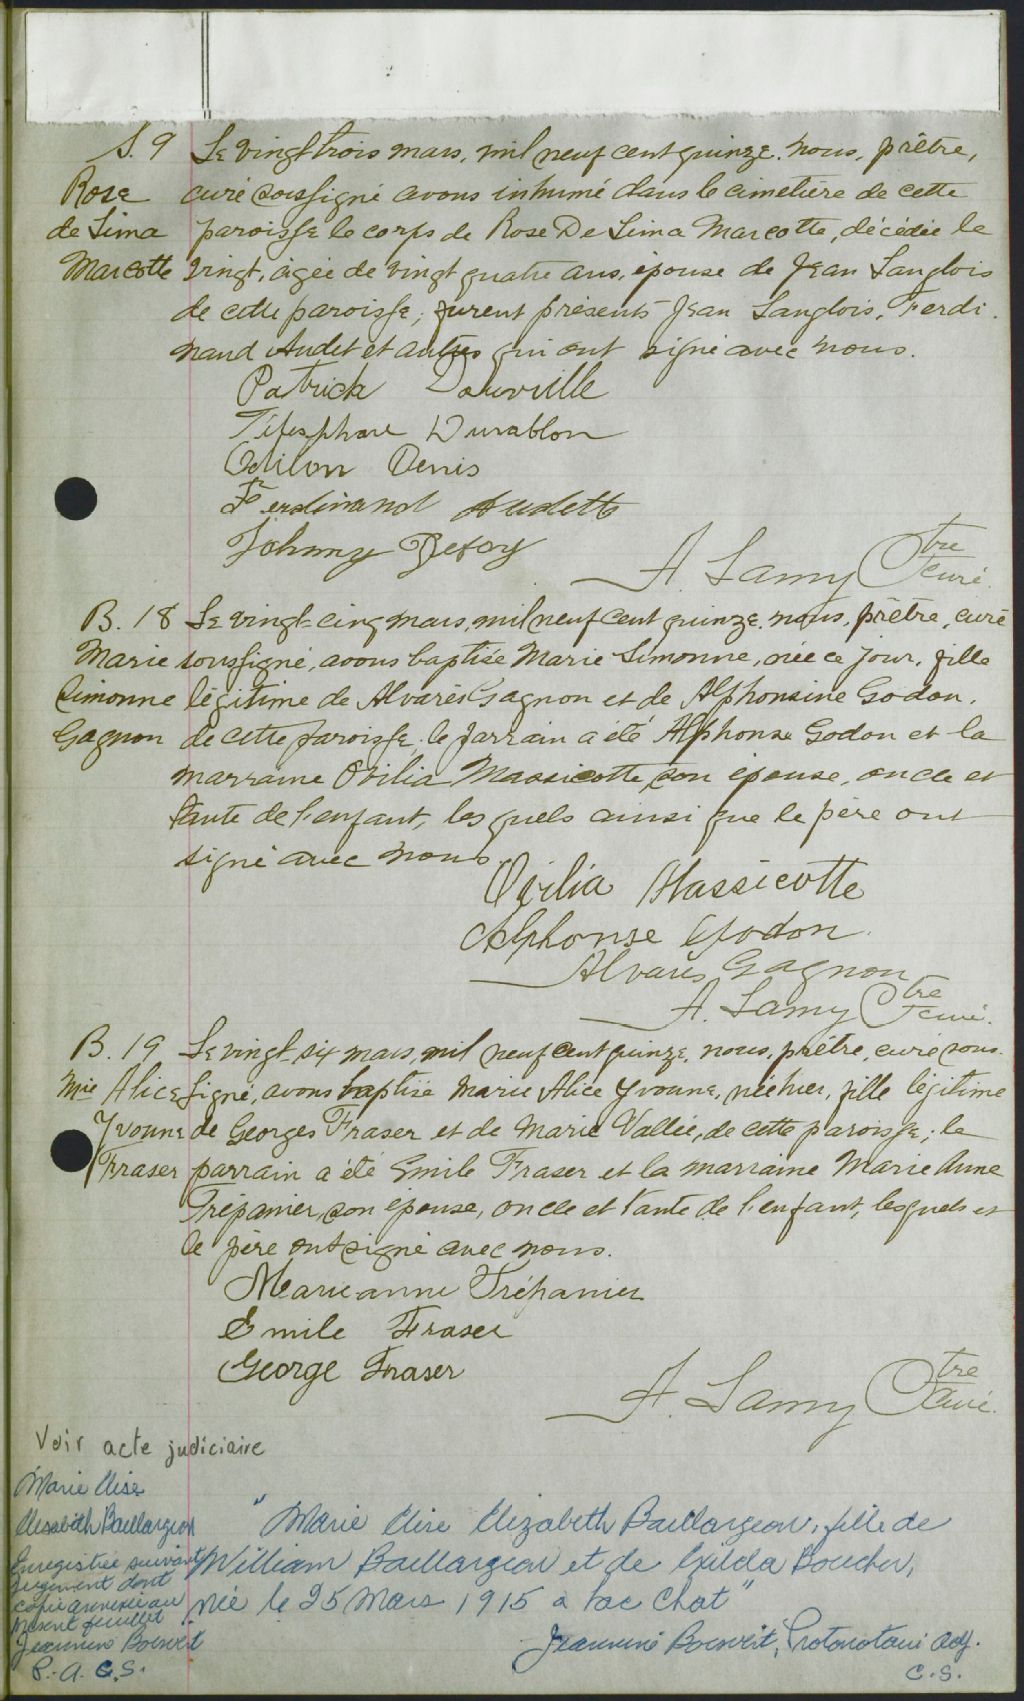 S. 9
Rose
de Lima
Marcotte
Le vingt trois mars, mil neuf cent quinze, nous, prêtre,
curé soussigné avons inhumé dans le cimetière de cette
paroisse le corps de Rose De Lima Marcotte, décédée le
vingt, âgée de vingt quatre ans, épouse de Jean Langlois
de cette paroisse; furent présents Jean Langlois, Ferdi
nand Audet et autres qui ont signé avec nous.
Patrick Douville
Télesphore Durablon
Odilon Denis
Ferdinand Audette
Johnny Defoy
A. Lamy Ptre
curé.
B. 18
Marie
Simonne
Gagnon
Le vingt-cinq mars, mil neuf cent quinze, nous, prêtre, curé
soussigné, avons baptisé Marie Simonne, née ce jour, fille
légitime de Alvarès Gagnon et de Alphonsine Godon,
de cette paroisse, le parrain a été Alphonse Godon et la
marraine Exilia Massicotte, son épouse, oncle et
tante de l'enfant, lesquels ainsi que le père ont
signé avec nous.
Exilia Massicotte
Alphonse Godon
Alvarès Gagnon
A. Lamy Ptre
curé.
B. 19
Mie Alice
Yvonne
Fraser
Le vingt-six mars, mil neuf cent quinze, nous, prêtre, curé sous-
signé, avons baptisé Marie Alice Yvonne, née hier, fille légitime
de Georges Fraser et de Marie Vallée, de cette paroisse; le
parrain a été Emile Fraser et la marraine Marie Anne
Trépanier, son épouse, oncle et tante de l'enfant, lesquels et
le père ont signé avec nous.
Marieanne Trépanier
Emile Fraser
George Fraser
A. Lamy Ptre
curé.
Voir acte judiciaire
Marie Elise
Elizabeth Baillargeon
Enregistrée suivant
jugement dont
copie annexée au
présent feuillet
Jeannine Boisvert
P. A. C. S.
"Marie Elise Elizabeth Baillargeon, fille de
William Baillargeon et de Exilda Boucher,
née le 25 Mars 1915 à Lac Chat"
Jeannine Boisvert, Protonotaire adj.
C. S.